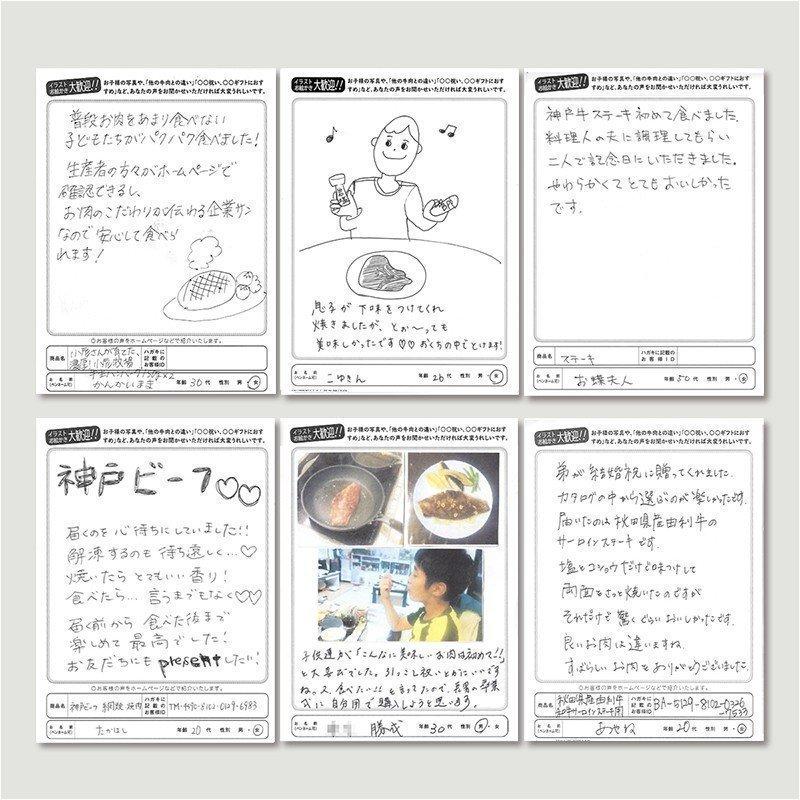 イラスト お絵かき 大歓迎!!
お子様の写真や、「他の牛肉との違い」「〇〇祝い、〇〇ギフトにおすすめ」など、あなたの声をお聞かせいただければ大変うれしいです。
普段お肉をあまり食べない
子どもたちがパクパク食べました!
生産者の方々がホームページで
確認できるし、
お肉のこだわりが伝わる企業サン
なので安心して食べら
れます!
◎お客様の声をホームページなどで紹介いたします。
商品名
ハガキに記載のお客様ID
お名前(ペンネーム可)
かんかいまき
年齢 30代 性別 男・女
イラスト お絵かき 大歓迎!!
お子様の写真や、「他の牛肉との違い」「〇〇祝い、〇〇ギフトにおすすめ」など、あなたの声をお聞かせいただければ大変うれしいです。
息子が下味をつけてくれ
焼きましたが、とぉ〜っても
美味しかったです♡♡おくちの中でとけます!
お名前(ペンネーム可)
こゆきん
年齢 26代 性別 男・女
イラスト お絵かき 大歓迎!!
お子様の写真や、「他の牛肉との違い」「〇〇祝い、〇〇ギフトにおすすめ」など、あなたの声をお聞かせいただければ大変うれしいです。
神戸牛ステーキ初めて食べました。
料理人の夫に調理してもらい
二人で記念日にいただきました。
やわらかくてとてもおいしかった
です。
商品名 ステーキ
ハガキに記載のお客様ID
お名前(ペンネーム可)
お蝶夫人
年齢 50代 性別 男・女
イラスト お絵かき 大歓迎!!
お子様の写真や、「他の牛肉との違い」「〇〇祝い、〇〇ギフトにおすすめ」など、あなたの声をお聞かせいただければ大変うれしいです。
神戸ビーフ♡♡
届くのを心待ちにしていました!!
解凍するのも待ち遠しく…♡
焼いたらとてもいい香り!
食べたら…言うまでもなく♡♡
届く前から食べた後まで
楽しめて最高でした!
お友だちにもpresentしたい!
◎お客様の声をホームページなどで紹介いたします。
商品名 神戸ビーフ 網焼 焼肉
ハガキに記載のお客様ID
お名前(ペンネーム可)
たかはし
年齢 20代 性別 男・女
イラスト お絵かき 大歓迎!!
お子様の写真や、「他の牛肉との違い」「〇〇祝い、〇〇ギフトにおすすめ」など、あなたの声をお聞かせいただければ大変うれしいです。
子供達が「こんなに美味しいお肉は初めて!!」
と大喜びでした。引っこし祝いとかにいいです
ね。又、食べたい!!と言ってたので、長男の卒業
式に自分用で購入しようと思います。
お名前(ペンネーム可)
勝成
年齢 30代 性別 男・女
イラスト お絵かき 大歓迎!!
お子様の写真や、「他の牛肉との違い」「〇〇祝い、〇〇ギフトにおすすめ」など、あなたの声をお聞かせいただければ大変うれしいです。
弟が結婚祝に贈ってくれました。
カタログの中から選ぶのが楽しかったです。
届いたのは秋田県産由利牛の
サーロインステーキです。
塩とコショウだけで味つけして
両面をさっと焼いたのですが
それだけで驚くぐらいおいしかったです。
良いお肉は違いますね。
すばらしいお肉をありがとうございました。
◎お客様の声をホームページなどで紹介いたします。
商品名 秋田県産由利牛
ハガキに記載のお客様ID
お名前(ペンネーム可)
あやね
年齢 20代 性別 男・女